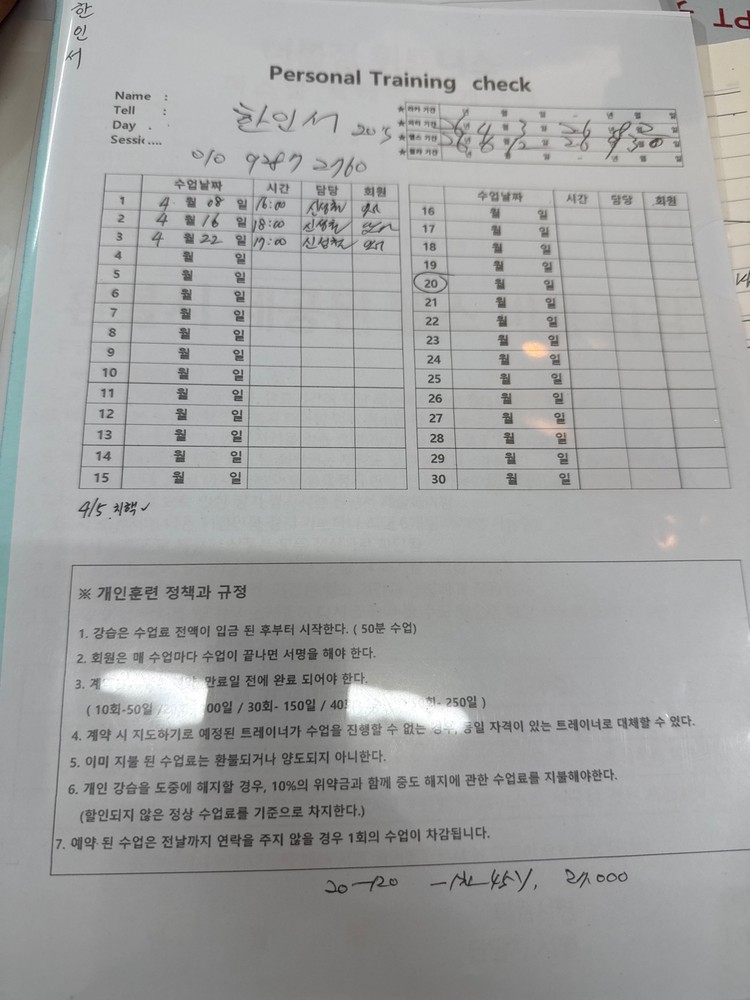 한인서
PT
Personal Training check
Name :
Tell :
Day .
Sessi....
한인서 20's
010 9287 2760
년 월 일 - 년 월 일
26 4 3 26
26 6 12 26 9 30
수업날짜 시간 담당 회원
1 4 월 08 일 16:00 신성철
2 4 월 16 일 18:00 신성철
3 4 월 22 일 17:00 신성철
4 월 일
5 월 일
6 월 일
7 월 일
8 월 일
9 월 일
10 월 일
11 월 일
12 월 일
13 월 일
14 월 일
15 월 일
수업날짜 시간 담당 회원
16 월 일
17 월 일
18 월 일
19 월 일
20 월 일
21 월 일
22 월 일
23 월 일
24 월 일
25 월 일
26 월 일
27 월 일
28 월 일
29 월 일
30 월 일
4/5 치핵✓
※ 개인훈련 정책과 규정
1. 강습은 수업료 전액이 입금 된 후부터 시작한다. ( 50분 수업)
2. 회원은 매 수업마다 수업이 끝나면 서명을 해야 한다.
3. 만료일 전에 완료 되어야 한다.
( 10회-50일 / 00일 / 30회- 150일 / 40 회- 250일 )
4. 계약 시 지도하기로 예정된 트레이너가 수업을 진행할 수 없는 경우, 동일 자격이 있는 트레이너로 대체할 수 있다.
5. 이미 지불 된 수업료는 환불되거나 양도되지 아니한다.
6. 개인 강습을 도중에 해지할 경우, 10%의 위약금과 함께 중도 해지에 관한 수업료를 지불해야한다.
(할인되지 않은 정상 수업료를 기준으로 차지한다.)
7. 예약 된 수업은 전날까지 연락을 주지 않을 경우 1회의 수업이 차감됩니다.
20→20 45%